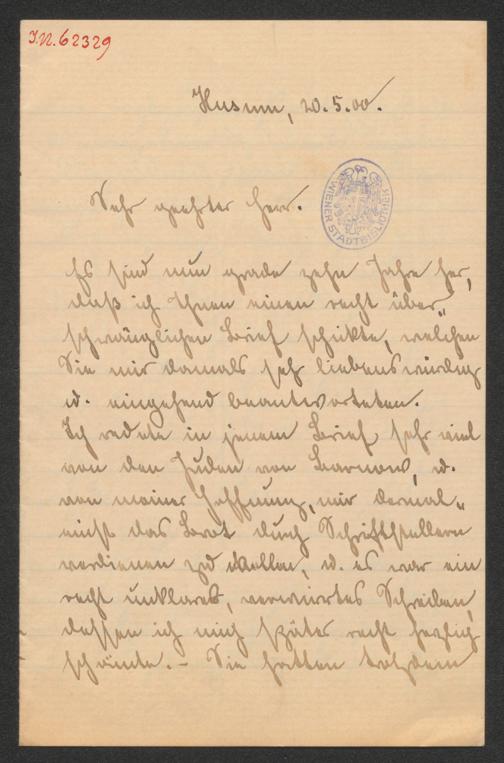 I.N. 62329
Husum, 20.5.00.
WIENER STADTBIBLIOTHEK
Sehr geehrter Herr.
Es sind nun grade zehn Jahre her,
daß ich Ihnen einen recht über„
schwänglichen Brief schikte, welchen
Sie mir damals sehr liebenswürdig
u. eingehend beantworteten.
Ich redete in jenem Brief sehr viel
von den Juden von Barnow, u.
von meiner Hoffnung, mir dermal„
einst das Brot durch Schriftstellern
verdienen zu wollen, u. es war ein
recht unklares, verwirrtes Schreiben,
dessen ich mich später recht herzlich
schämte. – Sie hatten trotzdem